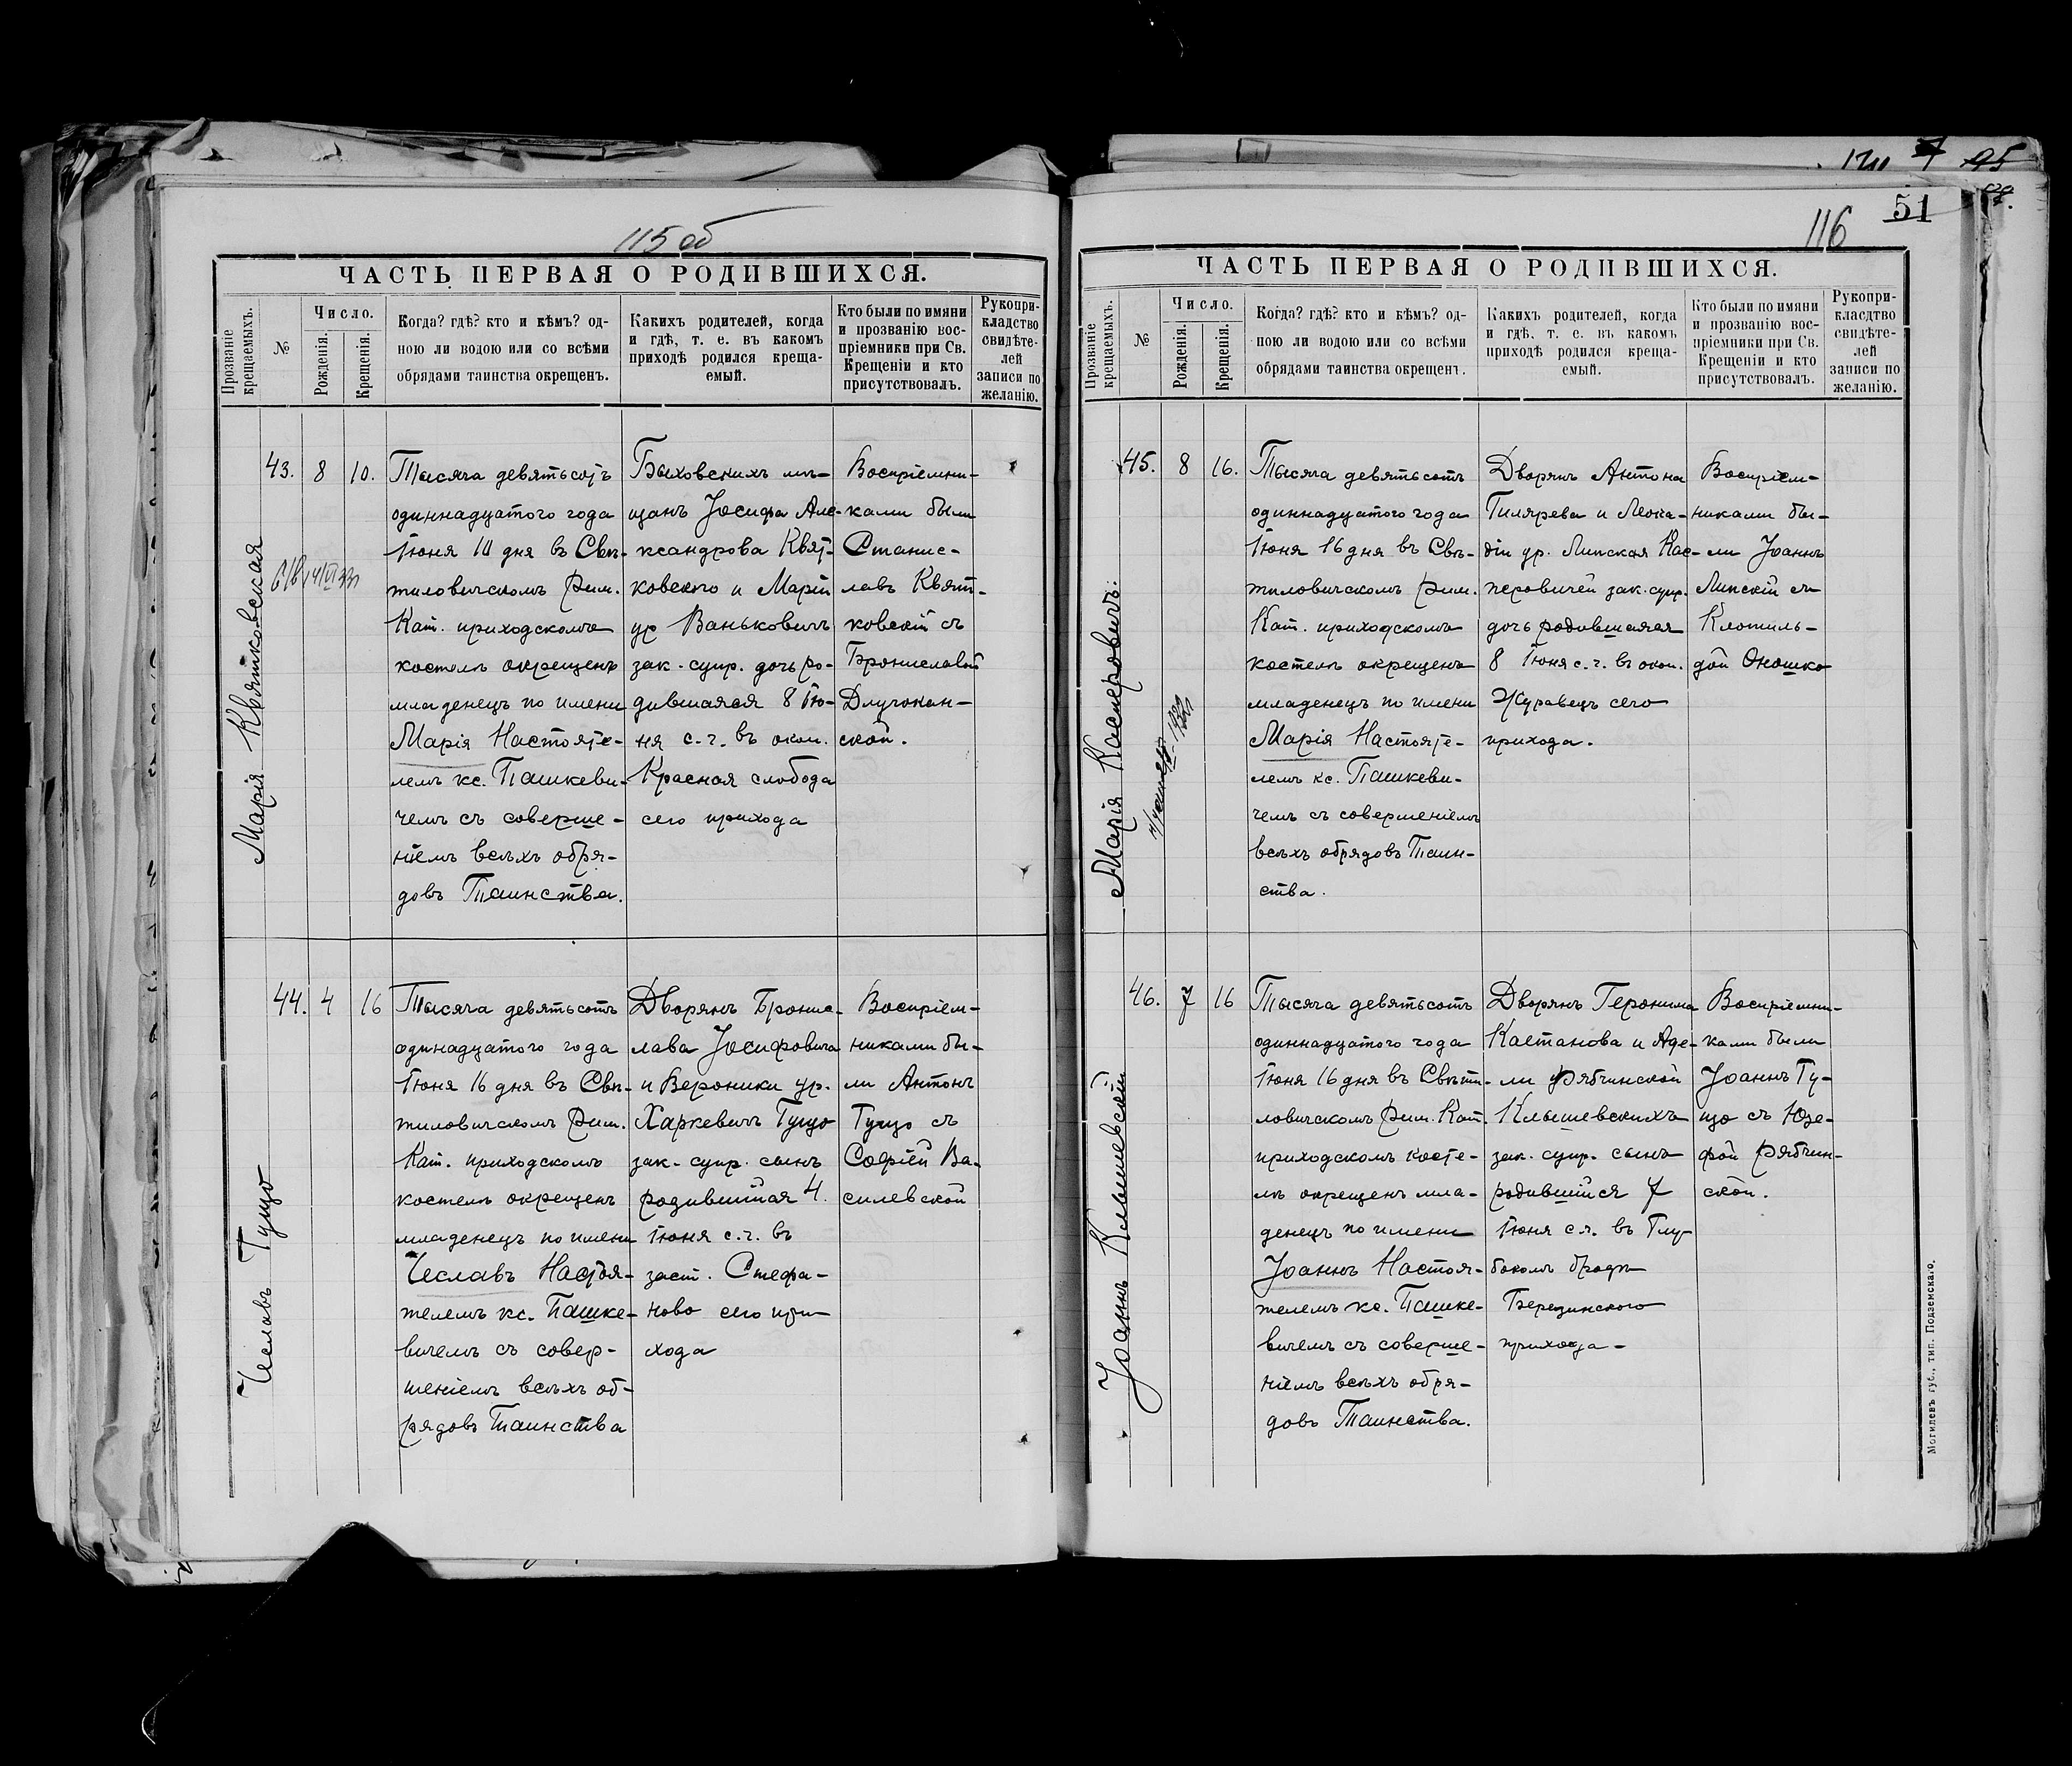 115 об
ЧАСТЬ ПЕРВАЯ О РОДИВШИХСЯ.
Прозваніе крещаемыхъ.
№
Число.
Рожденія.
Крещенія.
Когда? гдѣ? кто и кѣмъ? од-
ною ли водою или со всѣми
обрядами таинства окрещенъ.
Какихъ родителей, когда
и гдѣ, т. е. въ какомъ
приходѣ родился креща-
емый.
Кто были по имяни
и прозванію вос-
пріемники при Св.
Крещеніи и кто
присутствовалъ.
Рукопри-
кладство
свидѣте-
лей
записи по
желанію.
Марія Квятковская
43.
8
10.
Тысяча девятьсотъ
одиннадцатого года
Іюня 10 дня въ Свѣ-
тиловичскомъ Рим.
Кат. приходскомъ
костелѣ окрещенъ
младенецъ по имени
Марія Настояте-
лемъ кс. Пашкеви-
чемъ съ соверше-
ніемъ всѣхъ обря-
довъ Таинства.
Быховскихъ мѣ-
щанъ Іосифа Але-
ксандрова Квят-
ковского и Маріи
ур Ваньковичъ
зак. супр. дочь ро-
дившаяся 8 Ію-
ня с.г. въ окол.
Красная слобода
сего прихода
Воспріемни-
ками были
Станис-
лавъ Квят-
ковскій съ
Брониславой
Длугокан-
ской.
Чеславъ Гуцо
44.
4
16
Тысяча девятьсотъ
одинадцатого года
Іюня 16 дня въ Свѣ-
тиловичскомъ Рим.
Кат. приходскомъ
костелѣ окрещенъ
младенецъ по имени
Чеславъ Настоя-
телемъ кс. Пашке-
вичемъ съ совер-
шеніемъ всѣхъ об-
рядовъ Таинства
Дворянъ Бронис-
лава Іосифовича
и Вероники ур.
Харкевичъ Гуцо
зак. супр. сынъ
родившійся 4.
Іюня с.г. въ
заст. Стефа-
ново сего при
хода
Воспріем-
никами бы-
ли Антонъ
Гуцо съ
Софіей Ва-
силевской
51
116
ЧАСТЬ ПЕРВАЯ О РОДИВШИХСЯ.
Прозваніе крещаемыхъ.
№
Число.
Рожденія.
Крещенія.
Когда? гдѣ? кто и кѣмъ? од-
ною ли водою или со всѣми
обрядами таинства окрещенъ.
Какихъ родителей, когда
и гдѣ, т. е. въ какомъ
приходѣ родился креща-
емый.
Кто были по имяни
и прозванію вос-
пріемники при Св.
Крещеніи и кто
присутствовалъ.
Рукопри-
класдтво
свидѣте-
лей
записи по
желанію.
Марія Касперовичъ.
45.
8
16.
Тысяча девятьсотъ
одиннадцатого года
Іюня 16 дня въ Свѣ-
тиловичскомъ Рим.
Кат. приходскомъ
костелѣ окрещенъ
младенецъ по имени
Марія Настояте-
лемъ кс. Пашкеви-
чемъ съ совершеніемъ
всѣхъ обрядовъ Таин-
ства.
Дворянъ Антона
Гилярева и Леока-
діи ур. Липская Кас-
перовичей зак. супр.
дочь родившаяся
8 Іюня с.г. въ окол.
Журавецъ сего
прихода.
Воспріем-
никами бы-
ли Іоаннъ
Липскій съ
Клотиль-
дой Оношко
Іоаннъ Клышевскій
46.
7
16
Тысяча девятьсотъ
одиннадцатого года
Іюня 16 дня въ Свѣти-
ловичскомъ Рим. Кат.
приходскомъ косте-
лѣ окрещенъ мла-
денецъ по имени
Іоаннъ Настоя-
телемъ кс. Пашке-
вичемъ съ соверше-
ніемъ всѣхъ обря-
довъ Таинства.
Дворянъ Геронима
Каетанова и Аде-
ли Рябчинской
Клышевскихъ
зак. супр. сынъ
родившійся 7
Іюня с.г. въ Глу
бокомъ бродѣ
Березинского
прихода-
Воспріемни-
ками были
Іоаннъ Гу-
цо съ Юзе-
фой Рябчин-
ской.
Могилевъ губ., тип. Подземскаго.